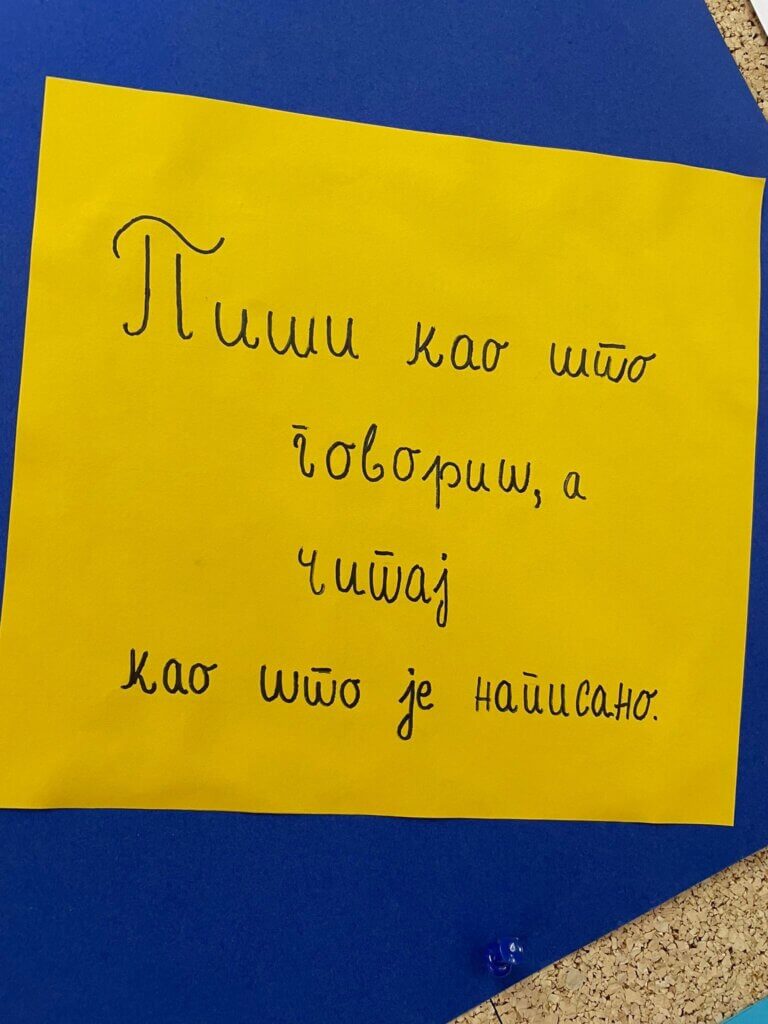 Пиши као што
говориш, а
читај
као што је написано.